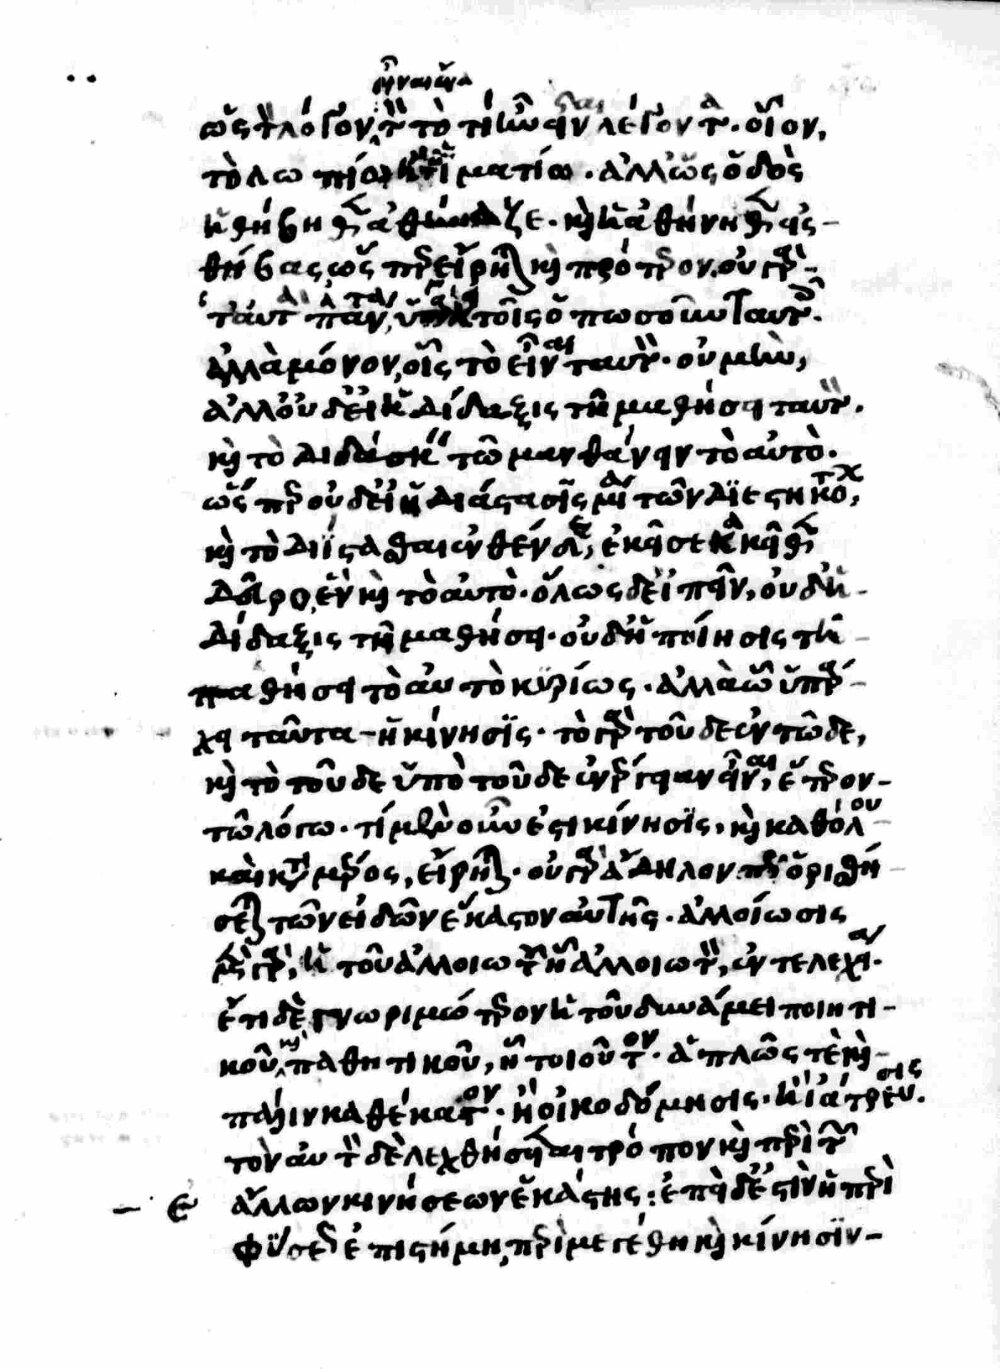 ὡς τὸν λόγον, εἶναι ἕνα τὸν τὸ τί ἦν εἶναι λέγοντα. οἷον,
τὸ λώπιον καὶ ἱματίω. ἀλλ' ὡς ὁδὸς
ἡ θήβηθεν ἀθήναζε. καὶ ἡ ἀθήνηθεν εἰς
θήβας, ὥσπερ εἴρηται καὶ πρότερον. οὐ γὰρ
ταυτὰ πάντα, ὑπάρχει τοῖς ὁπωσοῦν ταυτοῖς.
ἀλλὰ μόνον, οἷς τὸ εἶναι ταυτόν. οὐ μὴν,
ἀλλ' οὐδ' εἰ ἡ δίδαξις τῆ μαθήσει ταυτόν.
καὶ τὸ διδάσκειν τῶ μανθάνειν τὸ αὐτὸ.
ὥσπερ οὐδ' εἰ ἡ διάστασις μία τῶν διεστηκότων,
καὶ τὸ διίστασθαι ἐνθένδε, ἐκεῖσε κἀκεῖθεν
δεῦρο, ἓν καὶ τὸ αὐτὸ. ὅλως δ' εἰπεῖν, οὐδ' ἡ
δίδαξις τῆ μαθήσει. οὐδ' ἡ ποίησις τῆ
παθήσει τὸ αὐτὸ κυρίως. ἀλλὰ ὧ ὑπάρ-
χει ταῦτα ἡ κίνησις. τὸ γὰρ τοῦδε ἐν τῶδε,
καὶ τὸ τοῦδε ὑπὸ τοῦδε ἐνέργειαν εἶναι, ἕτερον
τῶ λόγω. τί μὲν οὖν ἐστι κίνησις, καὶ καθόλου
καὶ κατὰ μέρος, εἴρηται. οὐ γὰρ ἄδηλον πῶς ὁρισθή-
σεται τῶν εἰδῶν ἕκαστον αὐτῆς. ἀλλοίωσις
μὲν γὰρ, ἡ τοῦ ἀλλοιωτοῦ ἧ ἀλλοιωτὸν, ἐντελέχεια.
ἔτι δὲ γνωριμώτερον ἡ τοῦ δυνάμει ποιητι-
κοῦ, καὶ παθητικοῦ, ἧ τοιοῦτον. ἁπλῶς τὲ καὶ
πάλιν καθέκαστον. ἢ οἰκοδόμησις. ἢ ἰάτρευσις.
τὸν αὐτὸν δὲ λεχθήσεται τρόπον καὶ περὶ τῶν
ἄλλων κινήσεων ἑκάστης: ἐπεὶ δ' ἐστὶν ἡ περὶ
φύσεως ἐπιστήμη, περὶ μεγέθη καὶ κίνησιν